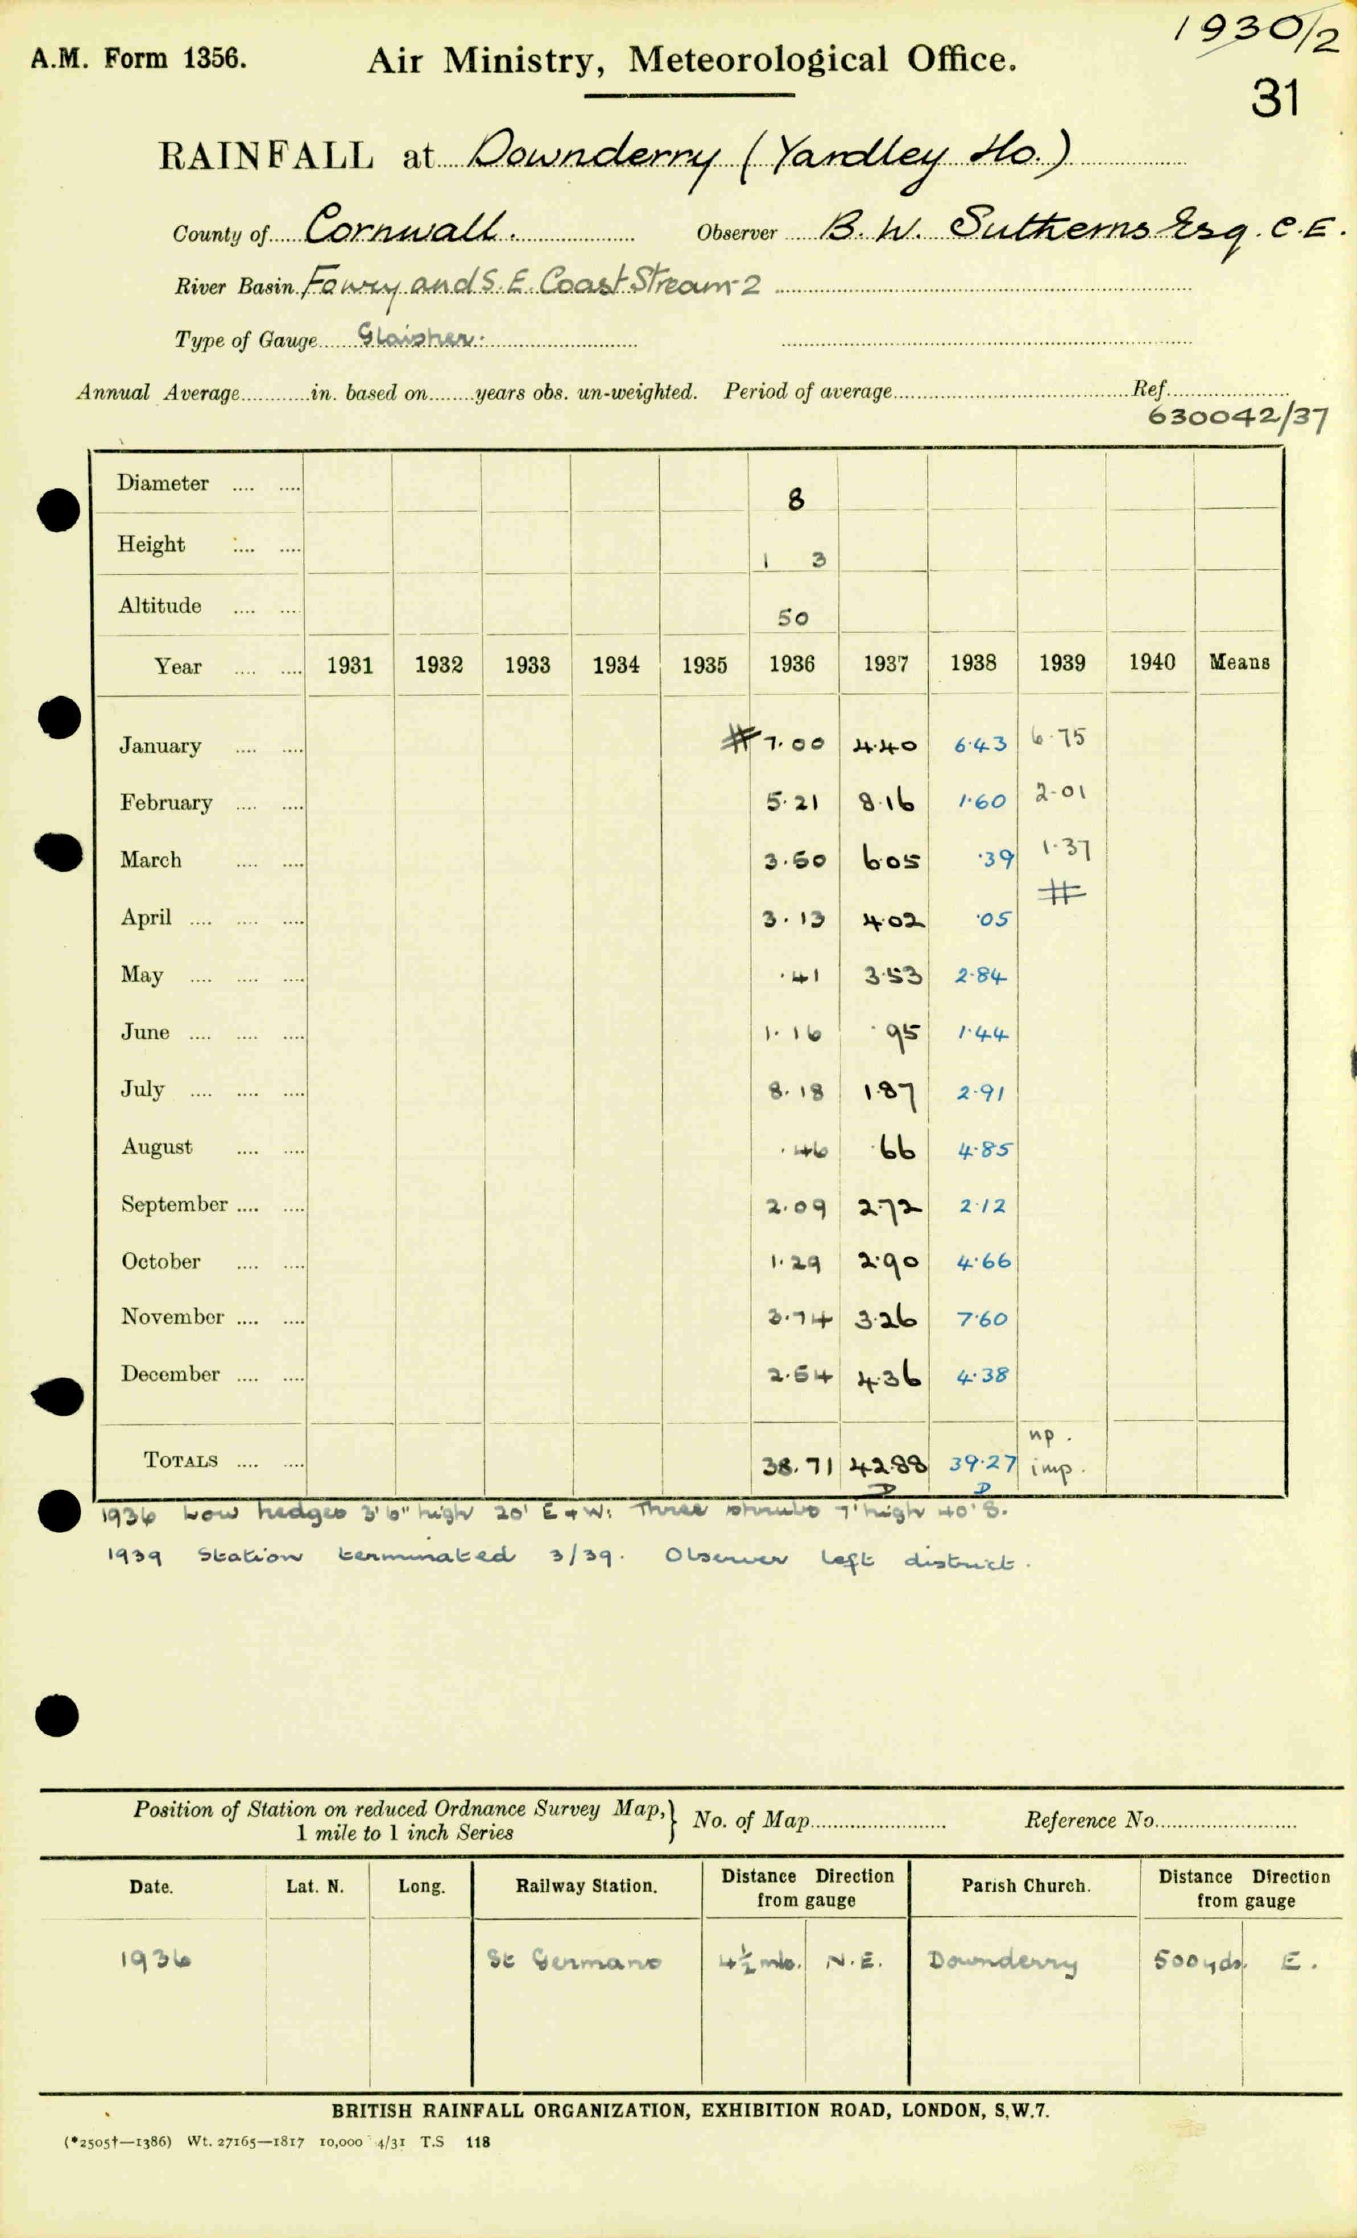 1930/2
A.M. Form 1356. Air Ministry, Meteorological Office.
31
RAINFALL at Downderry (Yardley Ho.)
County of Cornwall. Observer B. W. Sutherns Esq. C.E.
River Basin Fowey and S.E. Coast Stream-2
Type of Gauge Glaisher.
Annual Average in. based on years obs. un-weighted. Period of average Ref.
630042/37
Diameter 8
Height 1 3
Altitude 50
Year 1931 1932 1933 1934 1935 1936 1937 1938 1939 1940 Means
January # 7.00 4.40 6.43 6.75
February 5.21 8.16 1.60 2.01
March 3.50 6.05 .39 1.37
#
April 3.13 4.02 .05
May .41 3.53 2.84
June 1.16 .95 1.44
July 8.18 1.87 2.91
August .46 .66 4.85
September 2.09 2.72 2.12
October 1.29 2.90 4.66
November 3.74 3.26 7.60
December 2.54 4.36 4.38
np.
TOTALS 38.71 42.88 39.27 imp.
D D
1936 Low hedges 3'6" high 20' E & W. Three shrubs 7' high 40' S.
1939 Station terminated 3/39. Observer left district.
Position of Station on reduced Ordnance Survey Map, 1 mile to 1 inch Series } No. of Map Reference No.
Date. Lat. N. Long. Railway Station. Distance Direction from gauge Parish Church. Distance Direction from gauge
1936 St Germans 4½ mls. N.E. Downderry 500yds. E.
BRITISH RAINFALL ORGANIZATION, EXHIBITION ROAD, LONDON, S.W.7.
(*2505†—1386) Wt. 27165—1817 10,000 4/31 T.S 118